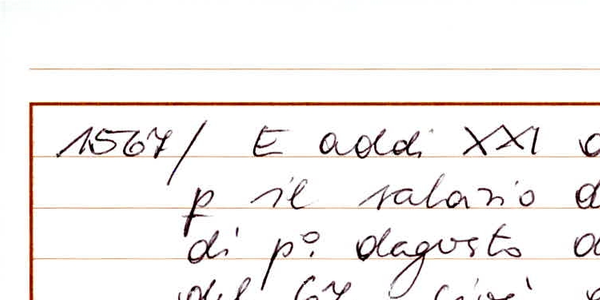 1567/ E addi XXI
p il salario
di pº. dagosto
del 67